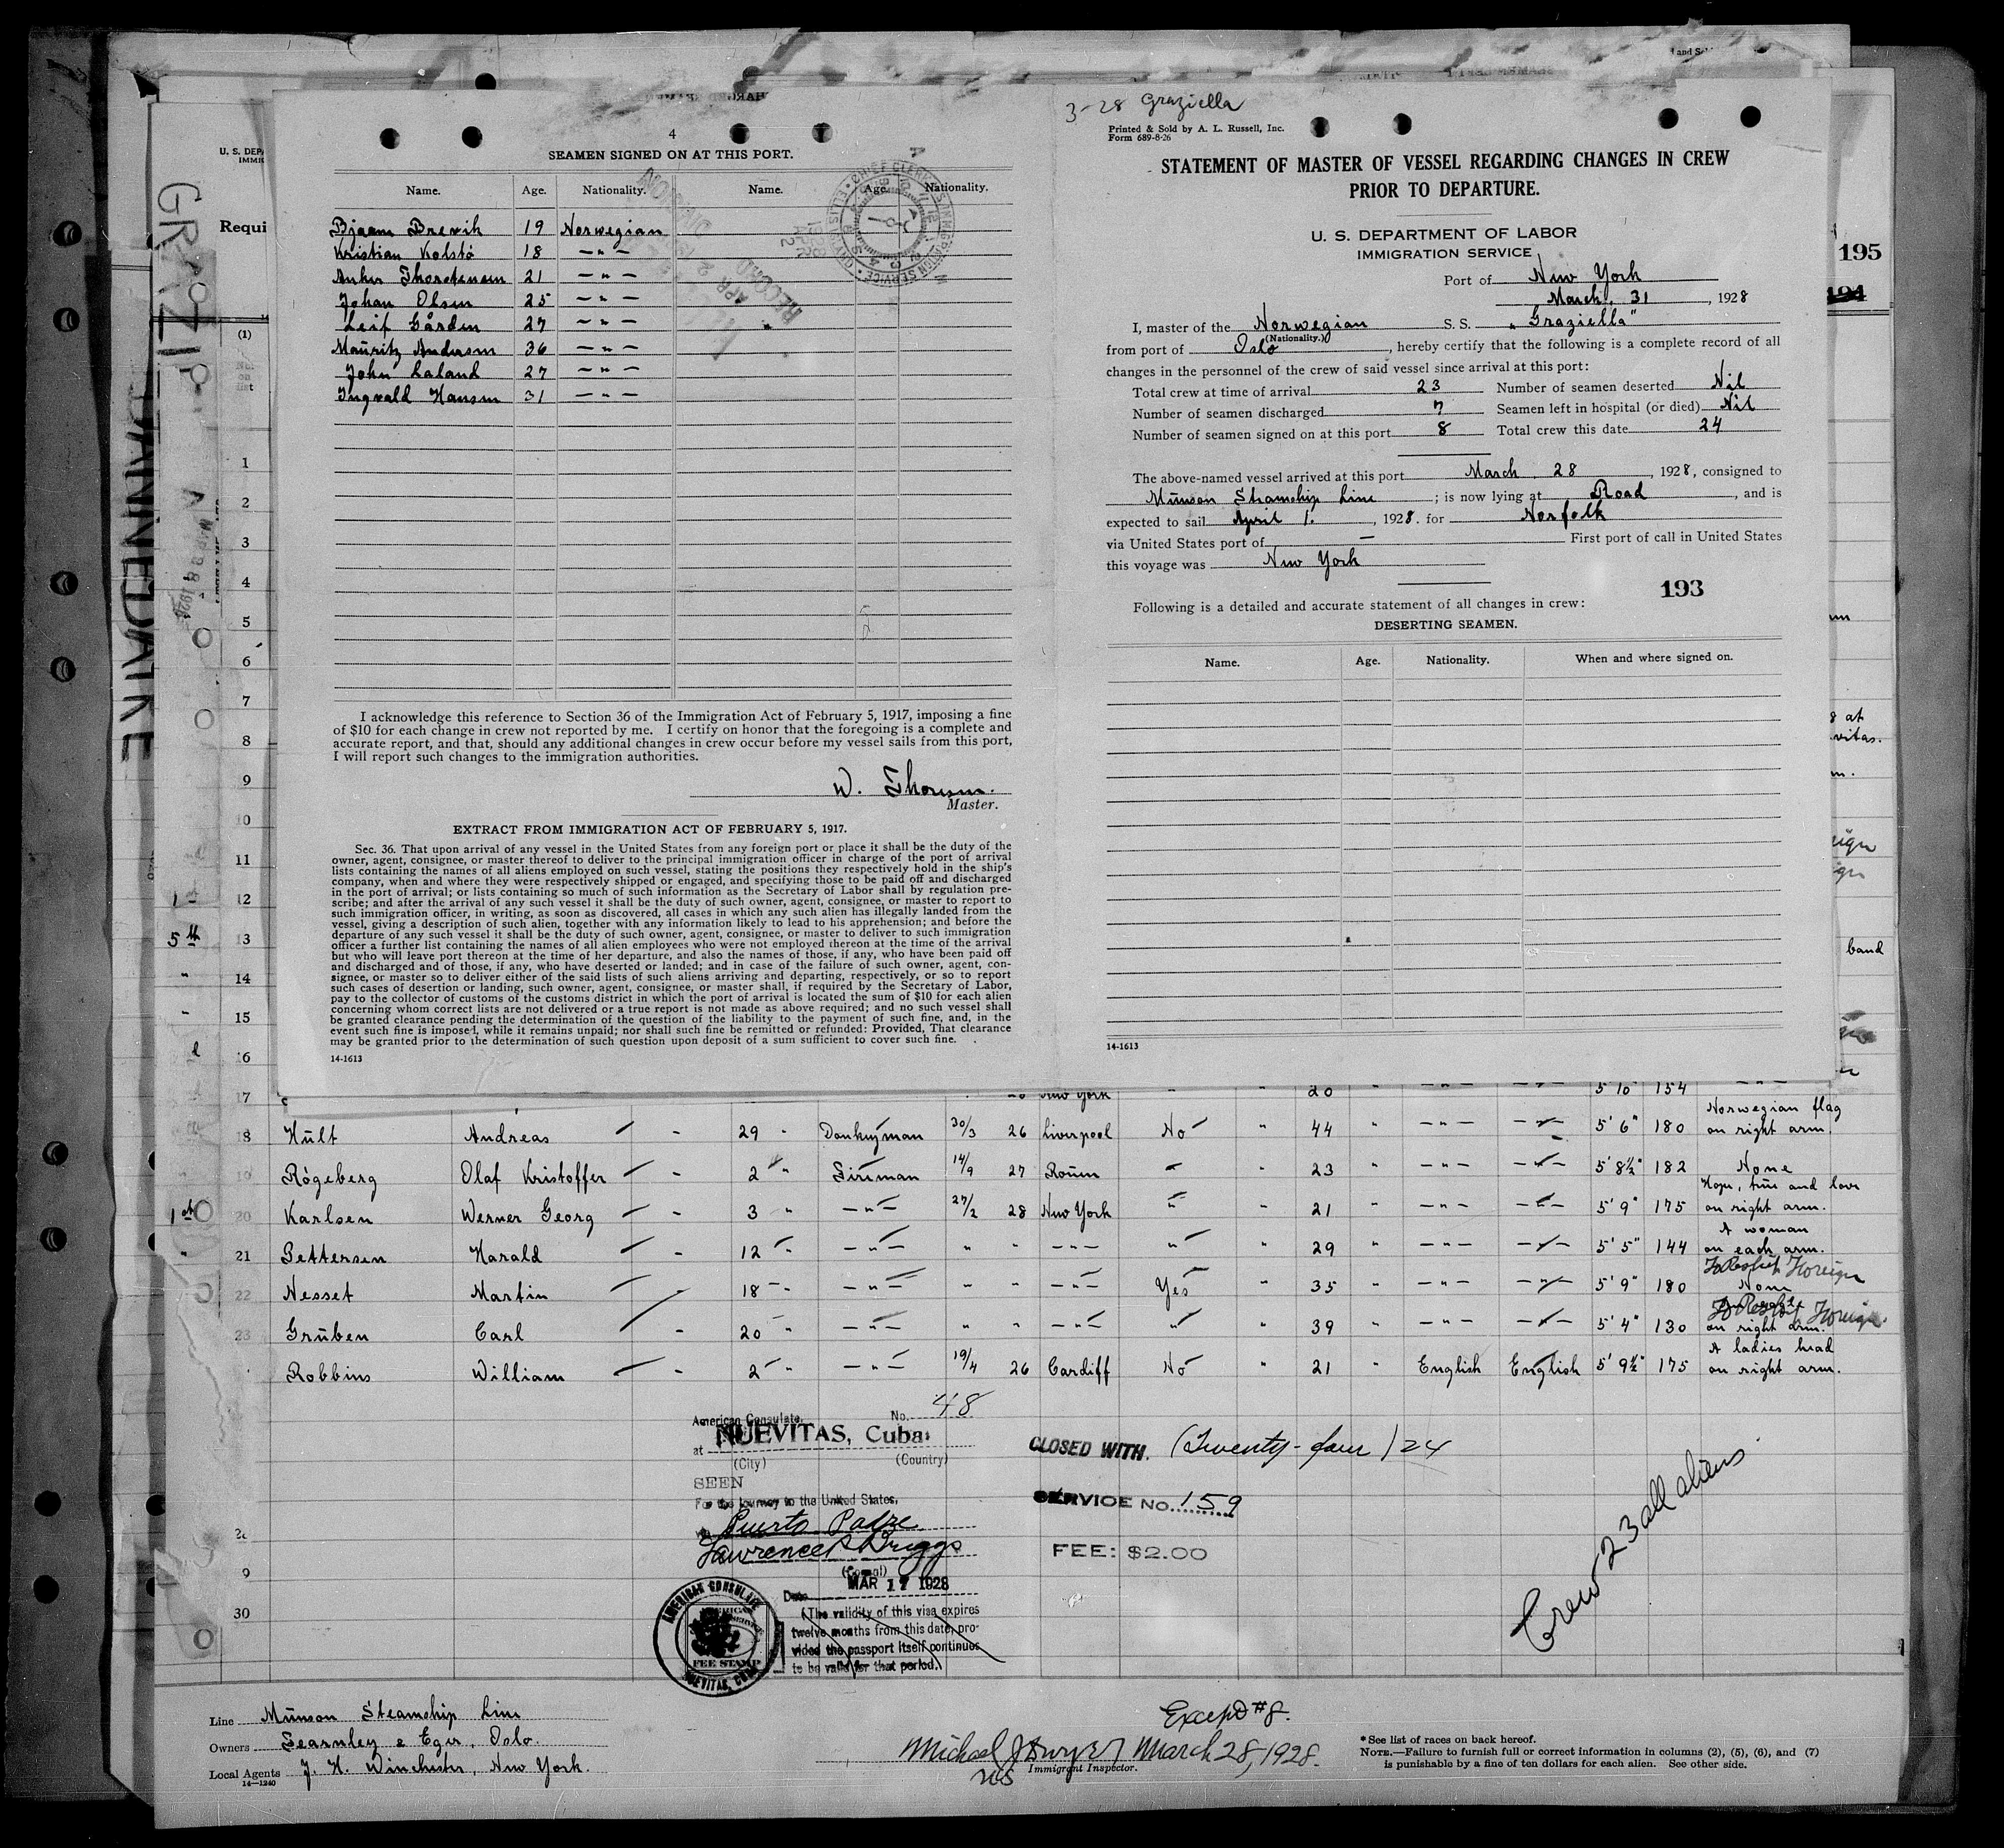 4
SEAMEN SIGNED ON AT THIS PORT.
Name. Age. Nationality. Name. Age. Nationality.
Bjarne Brevik 19 Norwegian
Kristian Kolstö 18 — " —
Thorstensen 21 — " —
Johan Olsen 25 — " —
Leif Gården 27 — " —
Mauritz Andersen 36 — " —
John Laland 27 — " —
Ingvald Hansen 31 — " —
I acknowledge this reference to Section 36 of the Immigration Act of February 5, 1917, imposing a fine
of $10 for each change in crew not reported by me. I certify on honor that the foregoing is a complete and
accurate report, and that, should any additional changes in crew occur before my vessel sails from this port,
I will report such changes to the immigration authorities.
W. Thoresen.
Master.
EXTRACT FROM IMMIGRATION ACT OF FEBRUARY 5, 1917.
Sec. 36. That upon arrival of any vessel in the United States from any foreign port or place it shall be the duty of the
owner, agent, consignee, or master thereof to deliver to the principal immigration officer in charge of the port of arrival
lists containing the names of all aliens employed on such vessel, stating the positions they respectively hold in the ship's
company, when and where they were respectively shipped or engaged, and specifying those to be paid off and discharged
in the port of arrival; or lists containing so much of such information as the Secretary of Labor shall by regulation pre-
scribe; and after the arrival of any such vessel it shall be the duty of such owner, agent, consignee, or master to report to
such immigration officer, in writing, as soon as discovered, all cases in which any such alien has illegally landed from the
vessel, giving a description of such alien, together with any information likely to lead to his apprehension; and before the
departure of any such vessel it shall be the duty of such owner, agent, consignee, or master to deliver to such immigration
officer a further list containing the names of all alien employees who were not employed thereon at the time of the arrival
but who will leave port thereon at the time of her departure, and also the names of those, if any, who have been paid off
and discharged and of those, if any, who have deserted or landed; and in case of the failure of such owner, agent, con-
signee, or master so to deliver either of the said lists of such aliens arriving and departing, respectively, or so to report
such cases of desertion or landing, such owner, agent, consignee, or master shall, if required by the Secretary of Labor,
pay to the collector of customs of the customs district in which the port of arrival is located the sum of $10 for each alien
concerning whom correct lists are not delivered or a true report is not made as above required; and no such vessel shall
be granted clearance pending the determination of the question of the liability to the payment of such fine, and, in the
event such fine is imposed, while it remains unpaid; nor shall such fine be remitted or refunded: Provided, That clearance
may be granted prior to the determination of such question upon deposit of a sum sufficient to cover such fine.
14-1613
3-28 Graziella
Printed & Sold by A. L. Russell, Inc.
Form 689-8-26
STATEMENT OF MASTER OF VESSEL REGARDING CHANGES IN CREW
PRIOR TO DEPARTURE.
U. S. DEPARTMENT OF LABOR
IMMIGRATION SERVICE
Port of New York
March, 31, 1928
I, master of the Norwegian S. S. "Graziella"
(Nationality.)
from port of Oslo, hereby certify that the following is a complete record of all
changes in the personnel of the crew of said vessel since arrival at this port:
Total crew at time of arrival 23 Number of seamen deserted Nil
Number of seamen discharged 7 Seamen left in hospital (or died) Nil
Number of seamen signed on at this port 8 Total crew this date 24
The above-named vessel arrived at this port March 28, 1928, consigned to
Munson Steamship Line; is now lying at Road, and is
expected to sail April 1., 1928. for Norfolk
via United States port of — First port of call in United States
this voyage was New York
193
Following is a detailed and accurate statement of all changes in crew:
DESERTING SEAMEN.
Name. Age. Nationality. When and where signed on.
14-1613
195
194
U. S. DEPA
IMMIG
Requi
(1)
GRAZIELLA
DANNEDAIKE
1
2
3
4
5
6
7
8
9
10
11
1st 12
5th 13
" 14
" 15
16
band
17 New York " " 20 " — " — — " — 5' 10 154 — " —
18 Hült Andreas - 29 " Donkeyman 30/3 26 Liverpool No " 44 " — " — — " — 5' 6" 180 Norwegian flag
on right arm.
19 Rögeberg Olaf Kristoffer - 2 " Fireman 14/9 27 Rouen " " 23 " — " — — " — 5' 8½" 182 None
1st 20 Karlsen Werner Georg - 3 " — " — 27/2 28 New York " " 21 " — " — — " — 5' 9" 175 Hope, true and love
on right arm.
" 21 Pettersen Harald - 12 " — " — " " — " — " " 29 " — " — — " — 5' 5" 144 A woman
on each arm.
22 Nesset Martin - 18 " — " — " " — " — Yes " 35 " — " — — " — 5' 9" 180 None
To Reship Foreign
23 Grüben Carl - 20 " — " — " " — " — " " 39 " — " — — " — 5' 4" 130 on right arm.
To Reship Foreign
Robbins William - 2 " — " — 19/4 26 Cardiff No " 21 " English English 5' 9½" 175 A ladies head
on right arm.
American Consulate, No. 48
at NUEVITAS, Cuba
(City) (Country)
SEEN
For the journey to the United States,
via Puerto Padre
Lawrence P Briggs
(Consul)
Date MAR 17 1928
(The validity of this visa expires
twelve months from this date, pro-
vided the passport itself continues
to be valid for that period.)
AMERICAN CONSULATE
FEE STAMP
NUEVITAS, CUBA
CLOSED WITH. (Twenty-four) 24
SERVICE NO. 159
FEE: $2.00
Crew 23 all aliens
9
30
Line Munson Steamship Line
Owners Fearnley & Eger, Oslo.
Local Agents J. H. Winchester, New York.
14—1240
Except #8.
Michael J Dwyer March 28, 1928.
Immigrant Inspector.
*See list of races on back hereof.
NOTE.—Failure to furnish full or correct information in columns (2), (5), (6), and (7)
is punishable by a fine of ten dollars for each alien. See other side.